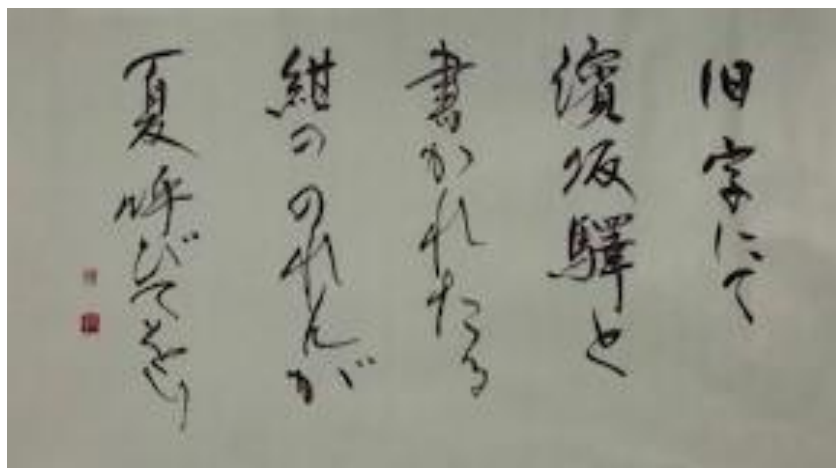 旧字にて
濱坂驛と
書かれたる
紺ののれんが
夏呼びてをり